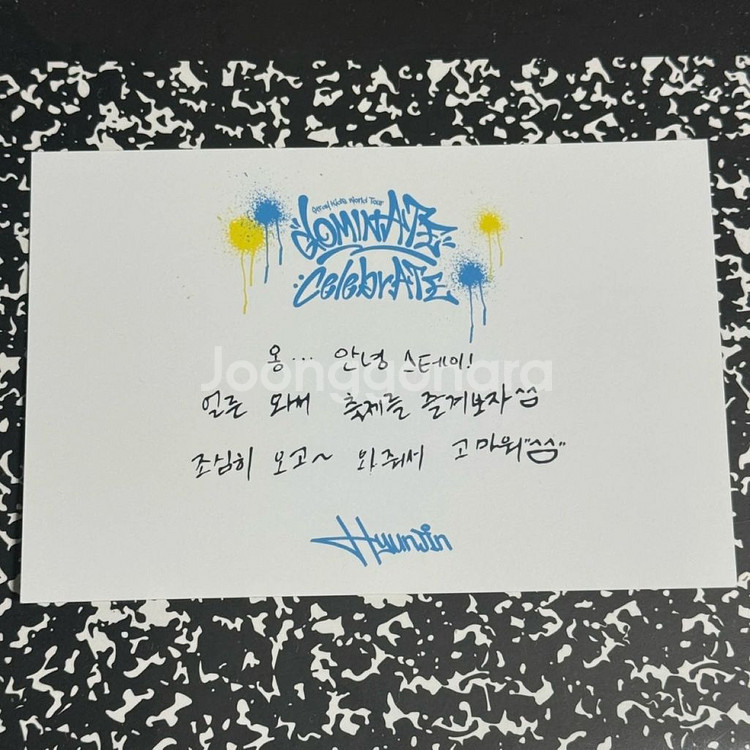 Stray Kids World Tour
dominATE
celebrATE
옹... 안녕 스테이!
얼른 와서 축제를 즐겨보자^^
조심히 오고~ 와줘서 고마워"^^"
Hyunjin
Joonggonara